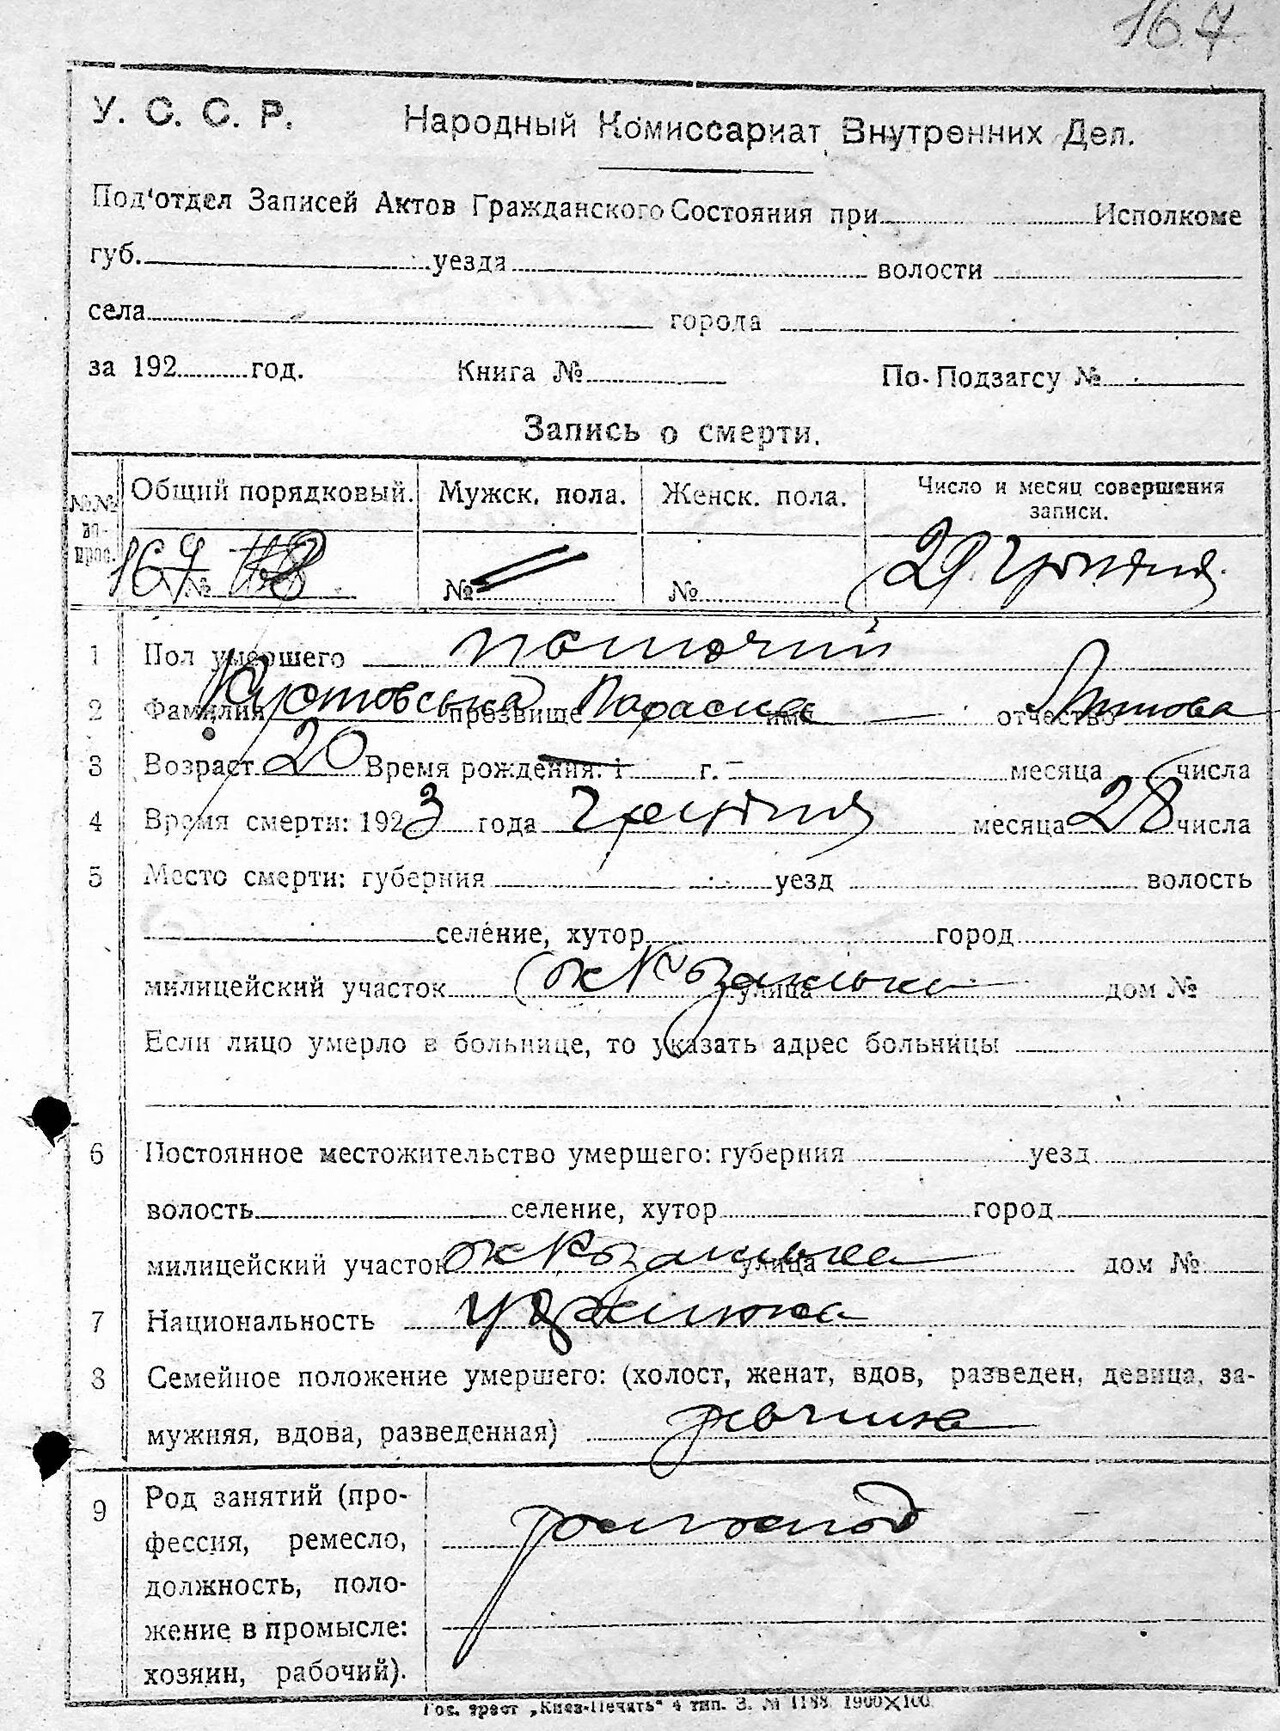 167
У. С. С. Р. Народный Комиссариат Внутренних Дел.
Под‘отдел Записей Актов Гражданского Состояния при Исполкоме
губ. уезда волости
села города
за 192 год. Книга № По-Подзагсу №
Запись о смерти.
№№ во-прос. Общий порядковый. Мужск. пола. Женск. пола. Число и месяц совершения записи.
167 № № № 29 грудня
1 Пол умершего жіночий
2 Фамилия прозвище Параска имя отчество
3 Возраст 20 Время рождения: 1 г. месяца числа
4 Время смерти: 1923 года грудня месяца 28 числа
5 Место смерти: губерния уезд волость
селение, хутор город
милицейский участок улица дом №
Если лицо умерло в больнице, то указать адрес больницы
6 Постоянное местожительство умершего: губерния уезд
волость селение, хутор город
милицейский участок улица дом №
7 Национальность
8 Семейное положение умершего: (холост, женат, вдов, разведен, девица, за-
мужняя, вдова, разведенная) дівчина
9 Род занятий (про-
фессия, ремесло,
должность, поло-
жение в промысле:
хозяин, рабочий).
Гос. трест „Киев-Печать“ 4 тип. З. № 1188 1900×100.